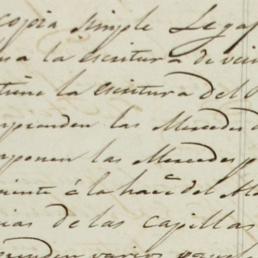 copia simple Lega
a la escritura de vein
tiene la escritura del
mprenden las Mercedes
mponen las Mercedes p
niente á la hacª del M
ias de las capillas
renden varios pape